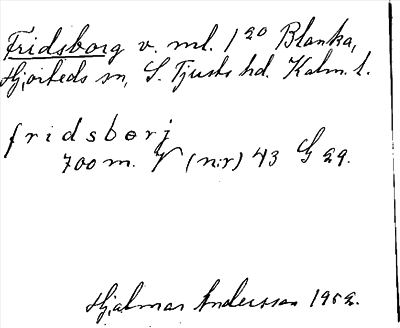 Fridsborg v. ml. 1/20 Blanka,
Hjorteds sn, S. Tjusts hd. Kalm. l.
fridsbørj
700 m. V (n:r) 43 G 29.
Hjalmar Andersson 1952.